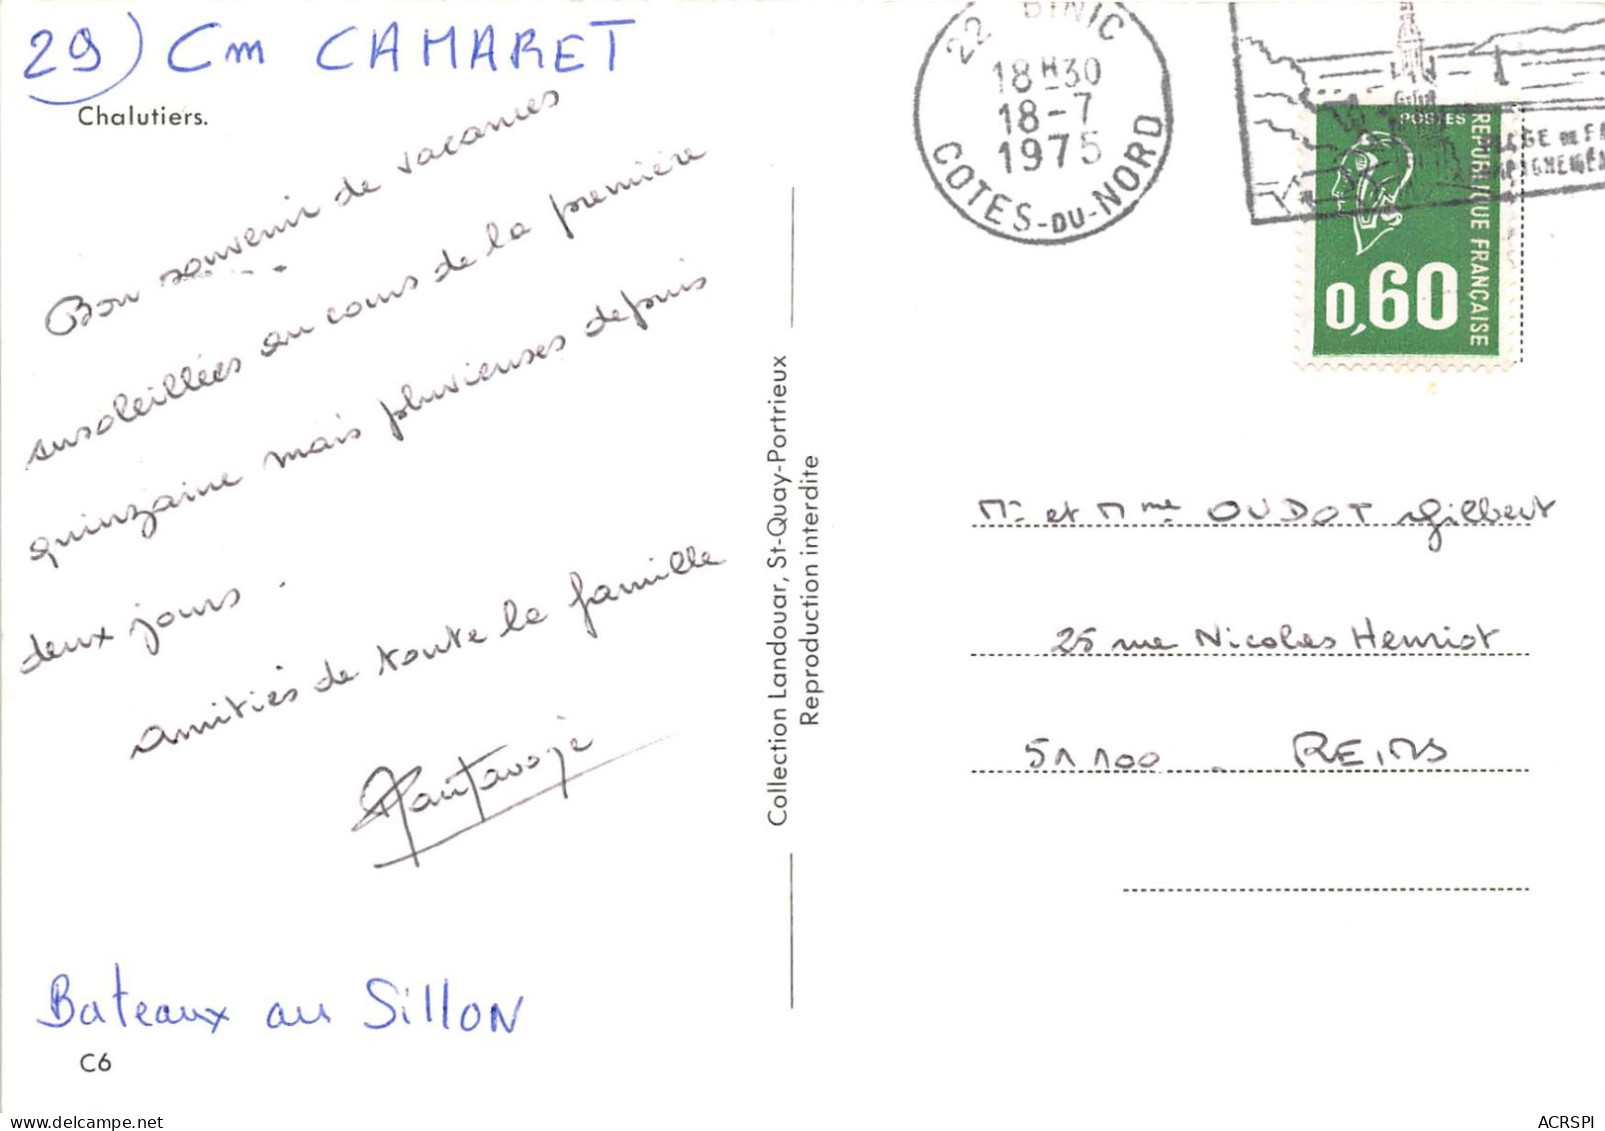 29) Cm CAMARET
Chalutiers.
Bon souvenir de vacances
ensoleillées au cours de la première
quinzaine mais pluvieuses depuis
deux jours.
Amitiés de toute la famille
Bateaux au SILLON
C6
Collection Landouar, St-Quay-Portrieux
Reproduction interdite
22 BINIC
18H30
18-7
1975
COTES-DU-NORD
POSTES
REPUBLIQUE FRANÇAISE
0,60
Mr et Mme OUDOT Gilbert
25 rue Nicolas Henriot
51100 . REIMS
ACRSPI